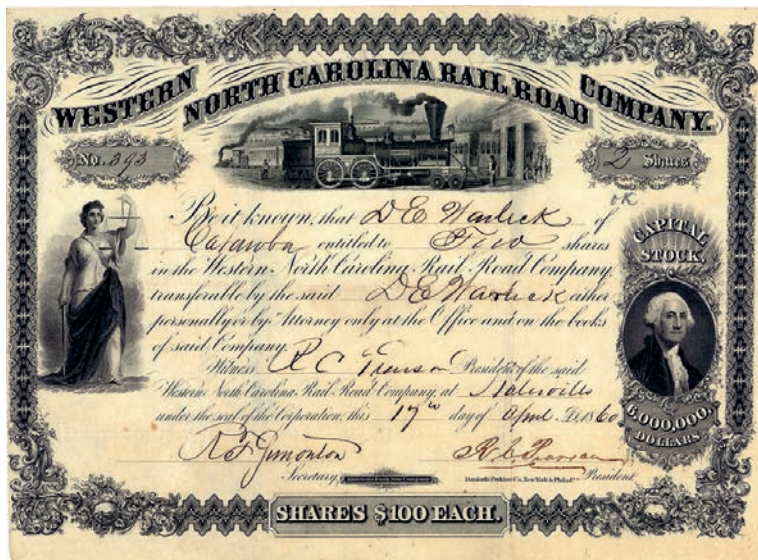 WESTERN NORTH CAROLINA RAIL ROAD COMPANY.
No. 393
2 Shares
OK
Be it known, that D E Warlick of
Catawba entitled to Two shares
in the Western North Carolina Rail Road Company
transferable by the said D E Warlick either
personally or by Attorney only at the Office and on the books
of said Company.
Witness R C Pearson President of the said
Western North Carolina Rail Road Company, at Statesville
under the seal of the Corporation, this 17th day of April 1860
R F Simonton
R. C. Pearson
Secretary
American Bank Note Company
Danforth Perkins & Co. New York & Philad.
President
CAPITAL
STOCK,
6,000,000,
DOLLARS
SHARES $100 EACH.